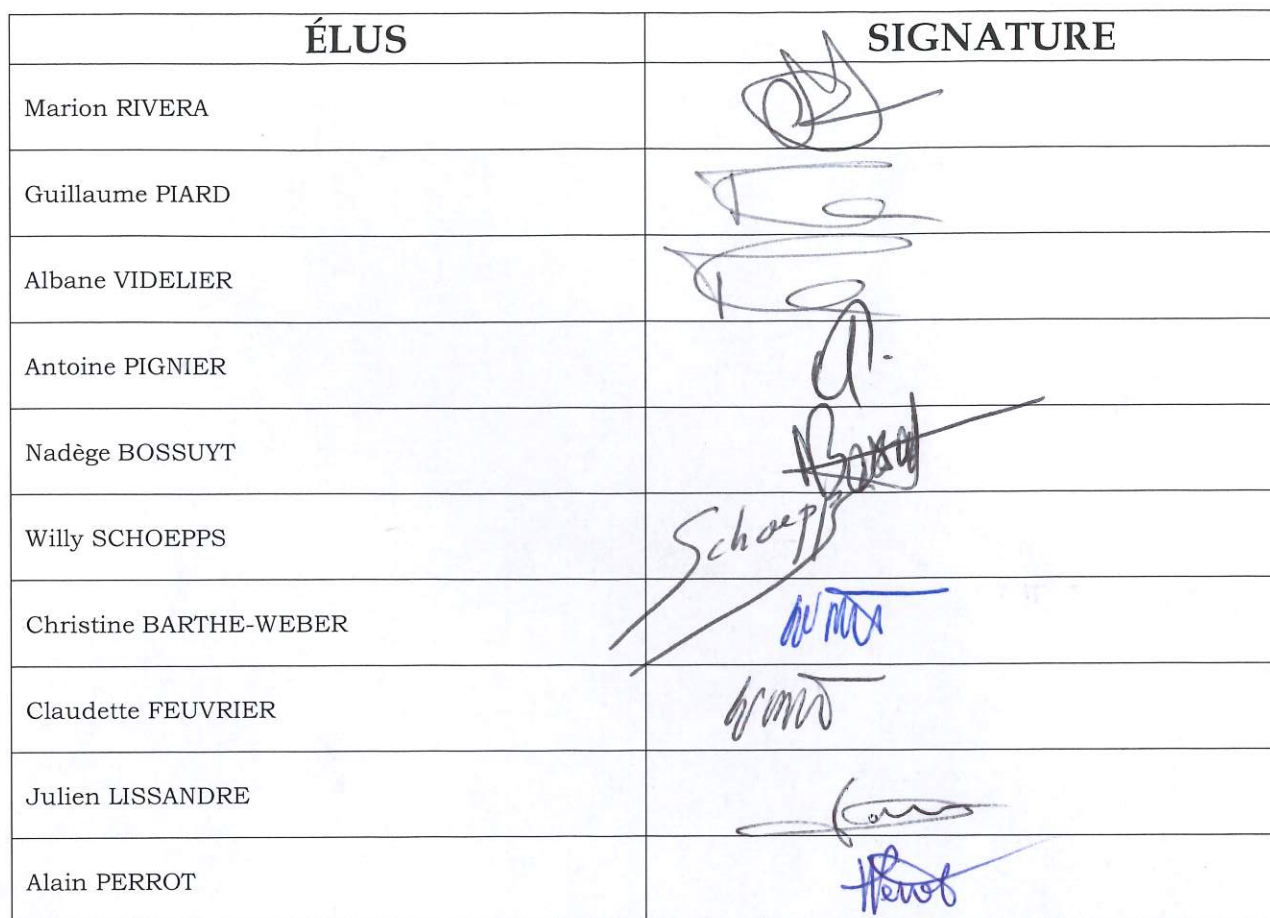 ÉLUS SIGNATURE
Marion RIVERA
Guillaume PIARD
Albane VIDELIER
Antoine PIGNIER
Nadège BOSSUYT
Willy SCHOEPPS Schoepps
Christine BARTHE-WEBER
Claudette FEUVRIER
Julien LISSANDRE
Alain PERROT Perrot